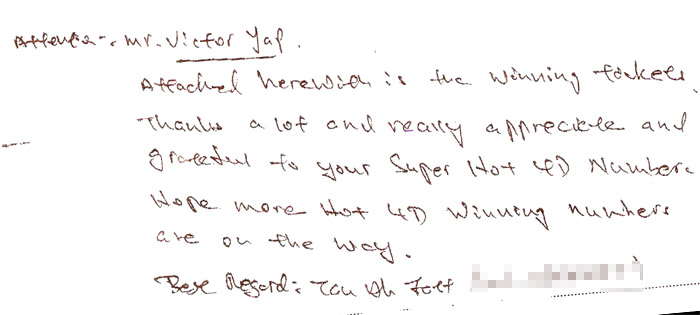 Attention: Mr. Victor Yap.
Attached herewith is the winning tickets.
Thanks a lot and really appreciate and
grateful to your Super Hot 4D Number.
Hope more Hot 4D winning numbers
are on the way.
Best Regard: Tan Ah